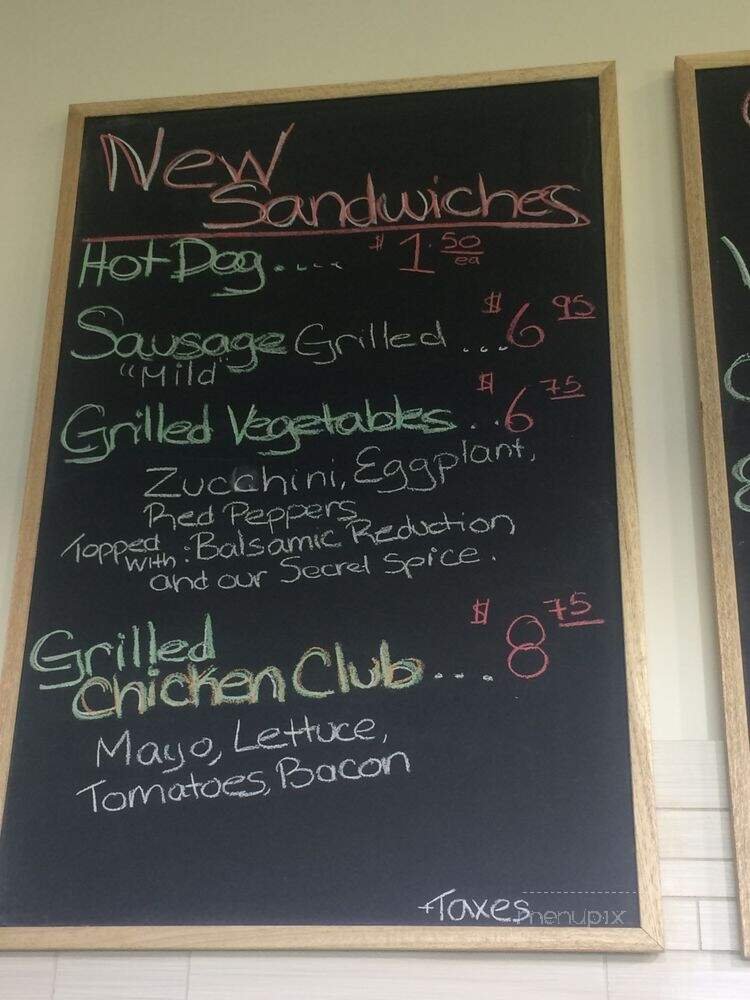 New
Sandwiches
Hot Dog.... $1.50 ea
Sausage Grilled ... $6.95
"Mild"
Grilled Vegetables.. $6.75
Zucchini, Eggplant,
Red Peppers
Topped with: Balsamic Reduction
and our Secret Spice.
Grilled
Chicken Club... $8.75
Mayo, Lettuce,
Tomatoes, Bacon
+Taxes
menupix